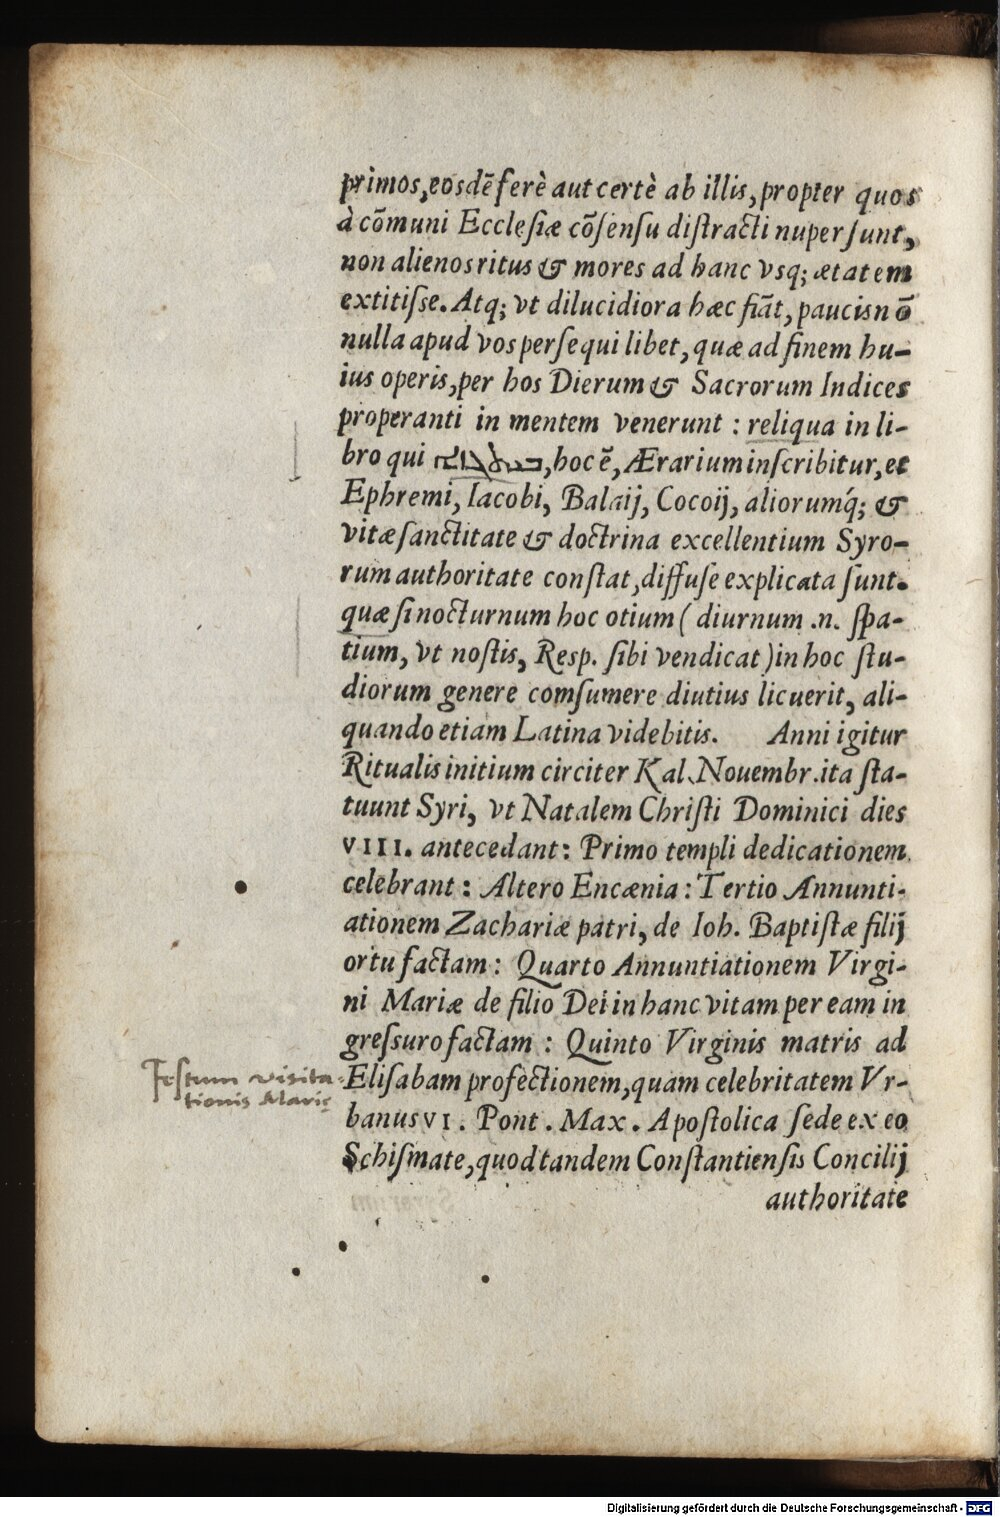 primos, eosdē ferè aut certè ab illis, propter quos
à cōmuni Ecclesiæ cōsensu distracti nuper sunt,
non alienos ritus & mores ad hanc vsq; ætatem
extitisse. Atq; vt dilucidiora hæc fiāt, paucis nō
nulla apud vos persequi libet, quæ ad finem hu-
ius operis, per hos Dierum & Sacrorum Indices
properanti in mentem venerunt : reliqua in li-
bro qui , hoc ē, Ærarium inscribitur, et
Ephremi, Iacobi, Balaij, Cocoij, aliorumq́; &
vitæ sanctitate & doctrina excellentium Syro-
rum authoritate constat, diffuse explicata sunt.
quæ si nocturnum hoc otium ( diurnum .n. spa-
tium, vt nostis, Resp. sibi vendicat ) in hoc stu-
diorum genere comsumere diutius licuerit, ali-
quando etiam Latina videbitis. Anni igitur
Ritualis initium circiter Kal. Nouembr. ita sta-
tuunt Syri, vt Natalem Christi Dominici dies
VIII. antecedant : Primo templi dedicationem
celebrant : Altero Encænia : Tertio Annunti-
ationem Zachariæ patri, de Ioh. Baptistæ filij
ortu factam : Quarto Annuntiationem Virgi-
ni Mariæ de filio Dei in hanc vitam per eam in
gressuro factam : Quinto Virginis matris ad
Festum visita-
tionis Marię
Elisabam profectionem, quam celebritatem Vr-
banus VI. Pont. Max. Apostolica sede ex eo
Schismate, quod tandem Constantiensis Concilij
authoritate
Digitalisierung gefördert durch die Deutsche Forschungsgemeinschaft - DFG